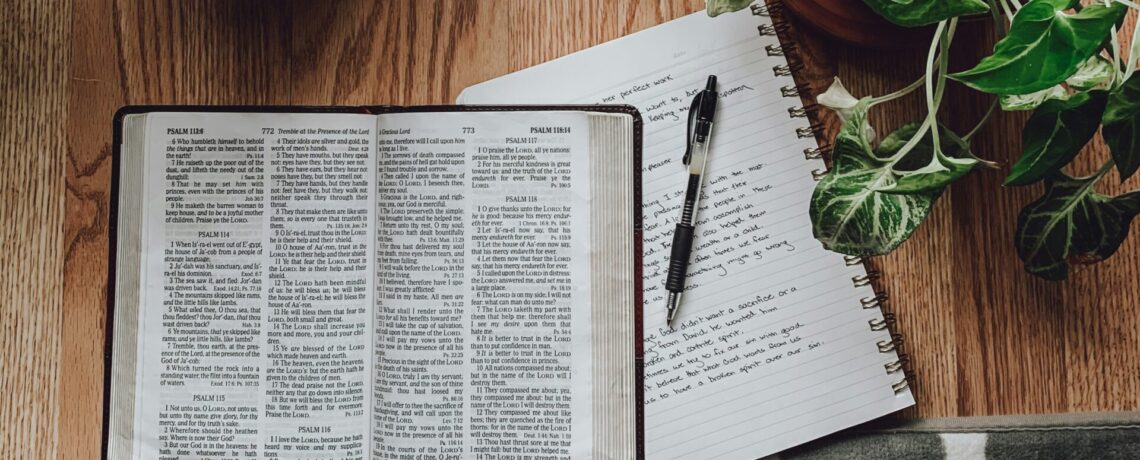 PSALM 113:6
6 Who humbleth himself to behold
the things that are in heaven, and in
the earth! Ps. 11:4
7 He raiseth up the poor out of the
dust, and lifteth the needy out of the
dunghill;
8 That he may set him with
princes, even with the princes of his
people. Job 36:7
9 He maketh the barren woman to
keep house, and to be a joyful mother
of children. Praise ye the LORD.
PSALM 114
1 When Is'ra-el went out of E'gypt,
the house of Ja'cob from a people of
strange language;
2 Ju'dah was his sanctuary, and Is'-
ra-el his dominion.
3 The sea saw it, and fled: Jor'dan
was driven back.
4 The mountains skipped like rams,
and the little hills like lambs.
5 What ailed thee, O thou sea, that
thou fleddest? thou Jor'dan, that thou
wast driven back?
6 Ye mountains, that ye skipped like
rams; and ye little hills, like lambs?
7 Tremble, thou earth, at the pres-
ence of the Lord, at the presence of the
God of Ja'cob;
8 Which turned the rock into a
standing water, the flint into a fountain
of waters.
PSALM 115
1 Not unto us, O LORD, not unto us,
but unto thy name give glory, for thy
mercy, and for thy truth's sake.
2 Wherefore should the heathen
say, Where is now their God?
3 But our God is in the heavens: he
hath done whatsoever he hath
772 Tremble at the Presence of the Lord
4 Their idols are silver and gold, the
work of men's hands.
5 They have mouths, but they speak
not: eyes have they, but they see not:
6 They have ears, but they hear not:
noses have they, but they smell not:
7 They have hands, but they handle
not: feet have they, but they walk not:
neither speak they through their
throat.
8 They that make them are like unto
them; so is every one that trusteth in
them.
9 O Is'ra-el, trust thou in the LORD:
he is their help and their shield.
10 O house of Aa'ron, trust in the
LORD: he is their help and their shield.
11 Ye that fear the LORD, trust in
the LORD: he is their help and their
shield.
12 The LORD hath been mindful
of us: he will bless us; he will bless
the house of Is'ra-el; he will bless the
house of Aa'ron.
13 He will bless them that fear the
LORD, both small and great.
14 The LORD shall increase you
more and more, you and your chil-
dren.
15 Ye are blessed of the LORD
which made heaven and earth.
16 The heaven, even the heavens,
are the LORD's: but the earth hath he
given to the children of men.
17 The dead praise not the LORD,
neither any that go down into silence.
18 But we will bless the LORD from
this time forth and for evermore.
Praise the LORD.
PSALM 116
1 I love the LORD, because he hath
heard my voice and my supplica-
Calling on the Lord 773
as long as I live.
3 The sorrows of death compassed
me, and the pains of hell gat hold upon
me: I found trouble and sorrow.
4 Then called I upon the name of
the LORD; O LORD, I beseech thee,
deliver my soul.
5 Gracious is the LORD, and righ-
teous; yea, our God is merciful.
6 The LORD preserveth the simple:
I was brought low, and he helped me.
7 Return unto thy rest, O my soul;
for the LORD hath dealt bountifully
with thee.
8 For thou hast delivered my soul
from death, mine eyes from tears, and
my feet from falling.
9 I will walk before the LORD in the
land of the living.
10 I believed, therefore have I spo-
ken: I was greatly afflicted:
11 I said in my haste, All men are
liars.
12 What shall I render unto the
LORD for all his benefits toward me?
13 I will take the cup of salvation,
and call upon the name of the LORD.
14 I will pay my vows unto the
LORD now in the presence of all his
people.
15 Precious in the sight of the LORD
is the death of his saints.
16 O LORD, truly I am thy servant;
I am thy servant, and the son of thine
handmaid: thou hast loosed my
bonds.
17 I will offer to thee the sacrifice of
thanksgiving, and will call upon the
name of the LORD.
18 I will pay my vows unto the
LORD now in the presence of all his
people,
19 In the courts of the LORD's
house, in the midst of thee, O Je-ru'-
PSALM 118:14
PSALM 117
1 O praise the LORD, all ye nations:
praise him, all ye people.
2 For his merciful kindness is great
toward us: and the truth of the LORD
endureth for ever. Praise ye the
LORD.
PSALM 118
1 O give thanks unto the LORD; for
he is good: because his mercy endur-
eth for ever.
2 Let Is'ra-el now say, that his
mercy endureth for ever.
3 Let the house of Aa'ron now say,
that his mercy endureth for ever.
4 Let them now that fear the LORD
say, that his mercy endureth for ever.
5 I called upon the LORD in distress:
the LORD answered me, and set me in
a large place.
6 The LORD is on my side; I will not
fear: what can man do unto me?
7 The LORD taketh my part with
them that help me: therefore shall
I see my desire upon them that
hate me.
8 It is better to trust in the LORD
than to put confidence in man.
9 It is better to trust in the LORD
than to put confidence in princes.
10 All nations compassed me about:
but in the name of the LORD will I
destroy them.
11 They compassed me about; yea,
they compassed me about: but in the
name of the LORD I will destroy them.
12 They compassed me about like
bees; they are quenched as the fire of
thorns: for in the name of the LORD
I will destroy them.
13 Thou hast thrust sore at me that
I might fall: but the LORD helped me.
14 The LORD is my strength and
Date
her perfect work
want to, but
keeping me
with the most
that their
the people in these
accomplish
also helped them
wealth or a child.
often times we fear
something might go wrong
God didn't want a sacrifice or a
from David, he wanted him
and contrite spirit.
times we try to fix our sin with good
believe that what God wants from us
us to have a broken spirit over our sin.